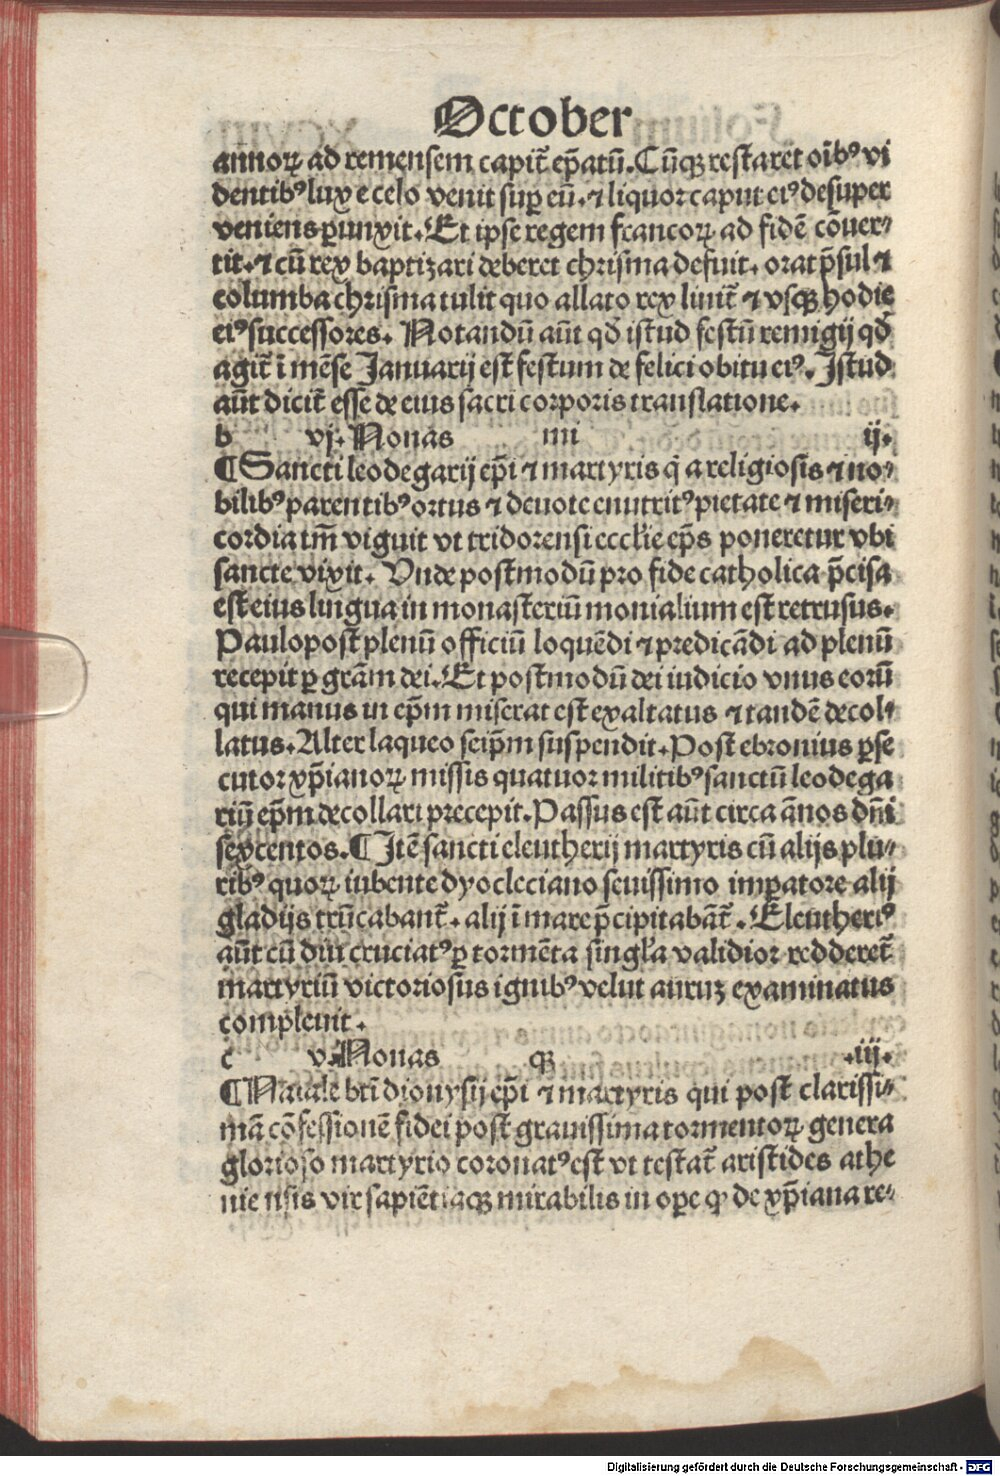 October
annoꝝ ad remensem capit̄ ep̄atū. Cūqꝫ restaret oībꝰ vi
dentibꝰ lux e celo venit suꝑ eū. ⁊ liquor caput eiꝰ desuper
veniens ꝑunxit. Et ipse regem francoꝝ ad fidē cōuer⸗
tit. ⁊ cū rex baptizari deberet chrisma defuit. orat p̄sul ⁊
columba chrisma tulit quo allato rex linit̄ ⁊ vsqꝫ hodie
eiꝰ successores. Notandū aūt qd̄ istud festū remigij qd̄
agit̄ ī mēse Januarij est festum de felici obitu eiꝰ. Jstud
aūt dicit̄ esse de eius sacri corporis translatione.
b vj. Nonas iiii ij.
¶ Sancti leodegarij ep̄i ⁊ martyris q̇ a religiosis ⁊ no⸗
bilibꝰ parentibꝰ ortus ⁊ deuote enutritꝰ pietate ⁊ miseri⸗
cordia tm̄ viguit vt tridorensi eccl̄ie ep̄s poneretur vbi
sancte vixit. Vnde postmodū pro fide catholica p̄cisa
est eius lingua in monasteriū monialium est retrusus.
Paulopost plenū officiū loquēdi ⁊ predicādi ad plenū
recepit ꝑ grām dei. Et postmodū dei iudicio vnus eorū
qui manus in ep̄m miserat est exaltatus ⁊ tandē decol⸗
latus. Alter laqueo seip̄m suspendit. Post ebronius ꝑse
cutor xp̄ianoꝝ missis quatuor militibꝰ sanctū leodega
riū ep̄m decollari precepit. Passus est aūt circa ānos dn̄i
sexcentos. ¶ Jtē sancti eleutherij martyris cū alijs plu⸗
ribꝰ quoꝝ iubente dyocleciano seuissimo imꝑatore alij
gladijs trūcabant̄. alij ī mare p̄cipitabāt̄. Eleutheriꝰ
aūt cū diu cruciatꝰ ꝑ tormēta singl̄a validior redderet̄
martyriū victoriosus ignibꝰ velut auruꝫ examinatus
compleuit.
c v. Nonas qꝫ .iij.
¶ Natale bt̄i dionysij ep̄i ⁊ martyris qui post clarissi⸗
mā cōfessionē fidei post grauissima tormentoꝝ genera
glorioso martyrio coronatꝰ est vt testat̄ aristides athe
niensis vir sapiētiaqꝫ mirabilis in oꝑe ꝙ de xp̄iana re⸗
Digitalisierung gefördert durch die Deutsche Forschungsgemeinschaft - DFG